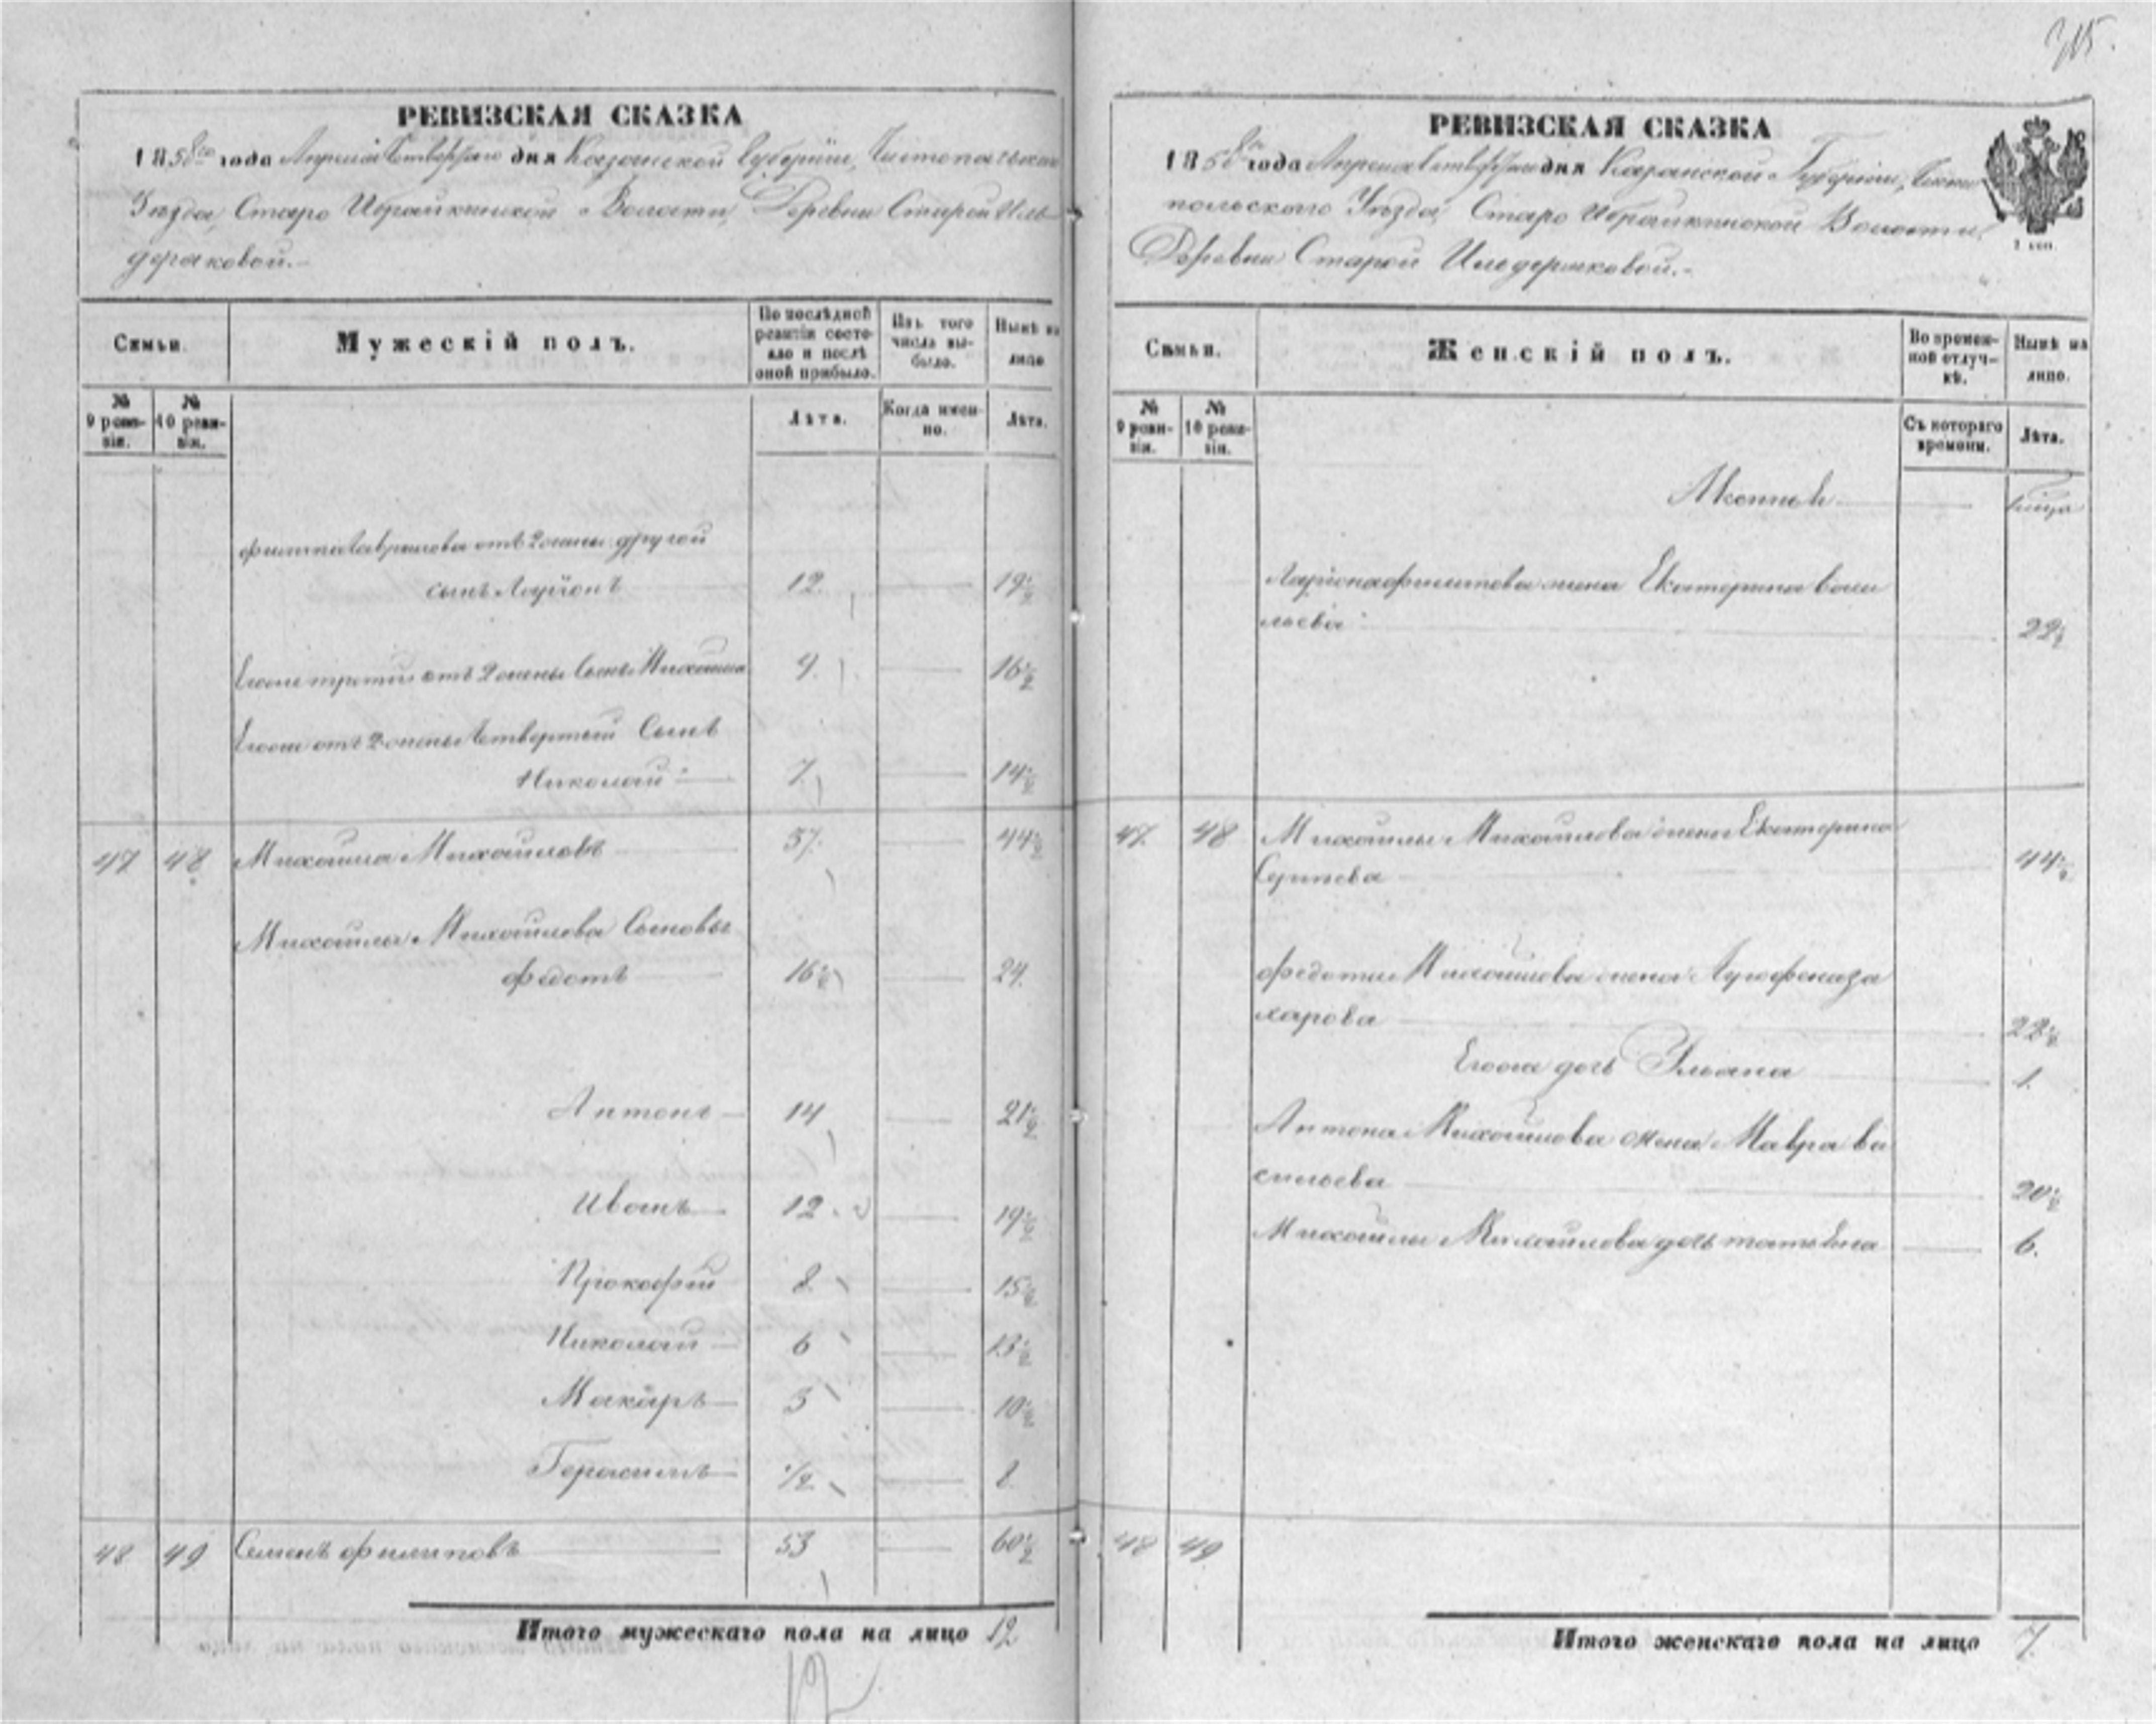 315.
РЕВИЗСКАЯ СКАЗКА
1858го года Апреля Четвертаго дня Казанской Губернiи, Чистопольскаго
Уѣзда, Старо Ибрайкинской Волости, Деревни Старой Иль-
деряковой.
Семьи.
Мужескiй полъ.
По послѣдней ревизiи состояло и послѣ оной прибыло.
Изъ того числа выбыло.
Нынѣ на лицо
№ 9 ревизiи.
№ 10 ревизiи.
Лѣта.
Когда именно.
Лѣта.
Филипа Гаврилова отъ 2 жены другой
сынъ Ларiонъ 12. 19½
Егоже третiй отъ 2 жены Сынъ Михайла 9. 16½
Егоже отъ 2 жены Четвертый Сынъ
Николай 7. 14½
47 48 Михайла Михайловъ 37. 44½
Михайлы Михайлова Сыновья
Федотъ 16½ 24.
Антонъ 14 21½
Иванъ 12 19½
Прокофiй 8. 15½
Николай 6 13½
Макаръ 3 10½
Герасимъ ½ 8
48 49 Семенъ Филиповъ 53 60½
Итого мужескаго пола на лицо 12
12
РЕВИЗСКАЯ СКАЗКА
1858го года Апреля Четвертаго дня Казанской Губернiи, Чисто
польскаго Уѣзда, Старо Ибрайкинской Волости,
Деревни Старой Ильдеряковой.
Семьи.
Женскiй полъ.
Во временной отлучкѣ.
Нынѣ на лицо.
№ 9 ревизiи.
№ 10 ревизiи.
Съ котораго времени.
Лѣта.
Ларiона Филипова жена Екатерина Васи
льева 22½
47. 48 Михайлы Михайлова жена Екатерина
44½
Федота Михайлова жена
харова 22½
Егоже дочь Ульяна 1.
Антона Михайлова жена Мавра Ва
сильева 20½
Михайлы Михайлова дочь Татьяна 6.
48 49.
Итого женскаго пола на лицо 7.